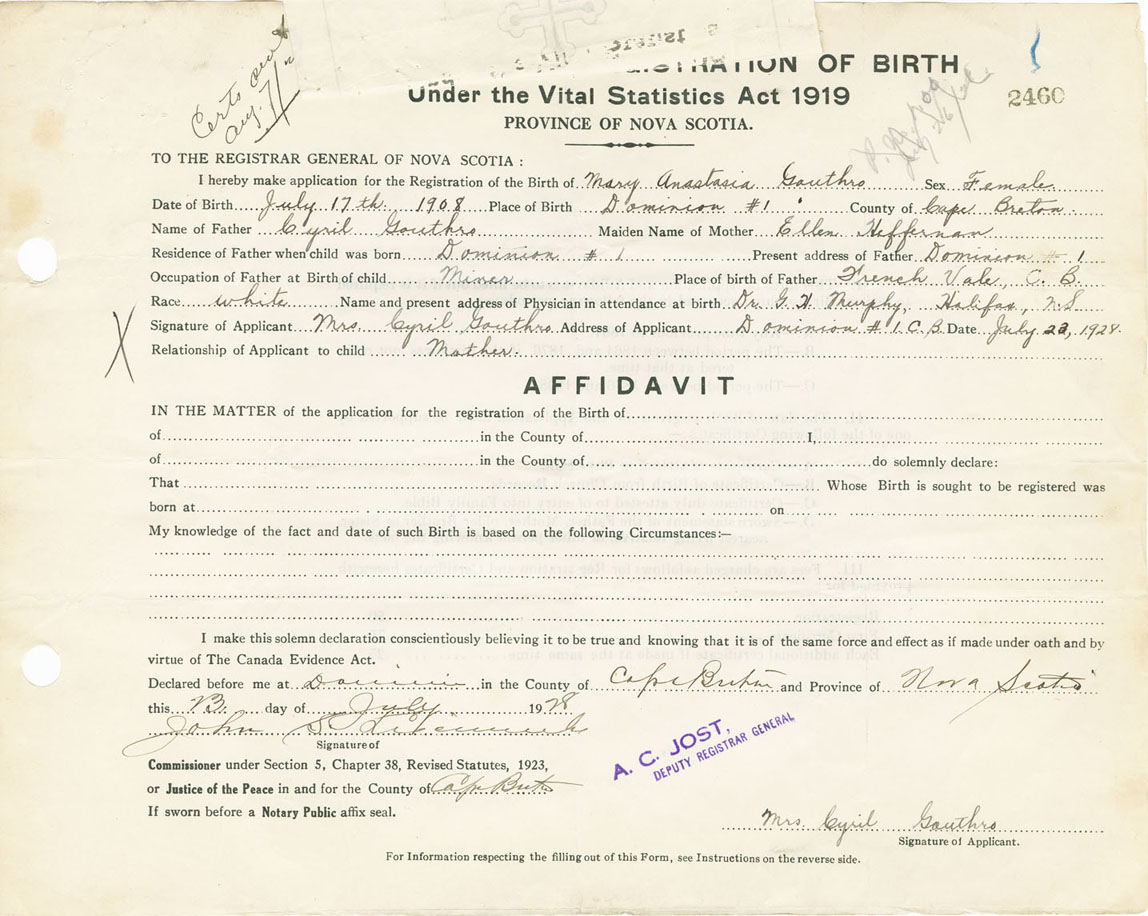 Certs and
Aug. 7/
REGISTRATION OF BIRTH
Under the Vital Statistics Act 1919
2460
PROVINCE OF NOVA SCOTIA.
TO THE REGISTRAR GENERAL OF NOVA SCOTIA :
I hereby make application for the Registration of the Birth of Mary Anastasia Gouthro Sex Female
Date of Birth July 17th 1908 Place of Birth Dominion #1 County of Cape Breton
Name of Father Cyril Gouthro Maiden Name of Mother Ellen Heffernan
Residence of Father when child was born Dominion # 1 Present address of Father Dominion # 1
Occupation of Father at Birth of child Miner Place of birth of Father French Vale, C. B.
Race white Name and present address of Physician in attendance at birth Dr. G. H. Murphy, Halifax, N.S
Signature of Applicant Mrs. Cyril Gouthro Address of Applicant Dominion # 1. C. B. Date July 23, 1928.
Relationship of Applicant to child Mother.
AFFIDAVIT
IN THE MATTER of the application for the registration of the Birth of
of in the County of I,
of in the County of do solemnly declare:
That Whose Birth is sought to be registered was
born at on
My knowledge of the fact and date of such Birth is based on the following Circumstances:—
I make this solemn declaration conscientiously believing it to be true and knowing that it is of the same force and effect as if made under oath and by
virtue of The Canada Evidence Act.
Declared before me at Dominion in the County of Cape Breton and Province of Nova Scotia
this 23 day of July 1928
John S.
Signature of
A. C. JOST,
DEPUTY REGISTRAR GENERAL
Commissioner under Section 5, Chapter 38, Revised Statutes, 1923,
or Justice of the Peace in and for the County of Cape Breton
If sworn before a Notary Public affix seal.
Mrs. Cyril Gouthro
Signature of Applicant.
For Information respecting the filling out of this Form, see Instructions on the reverse side.